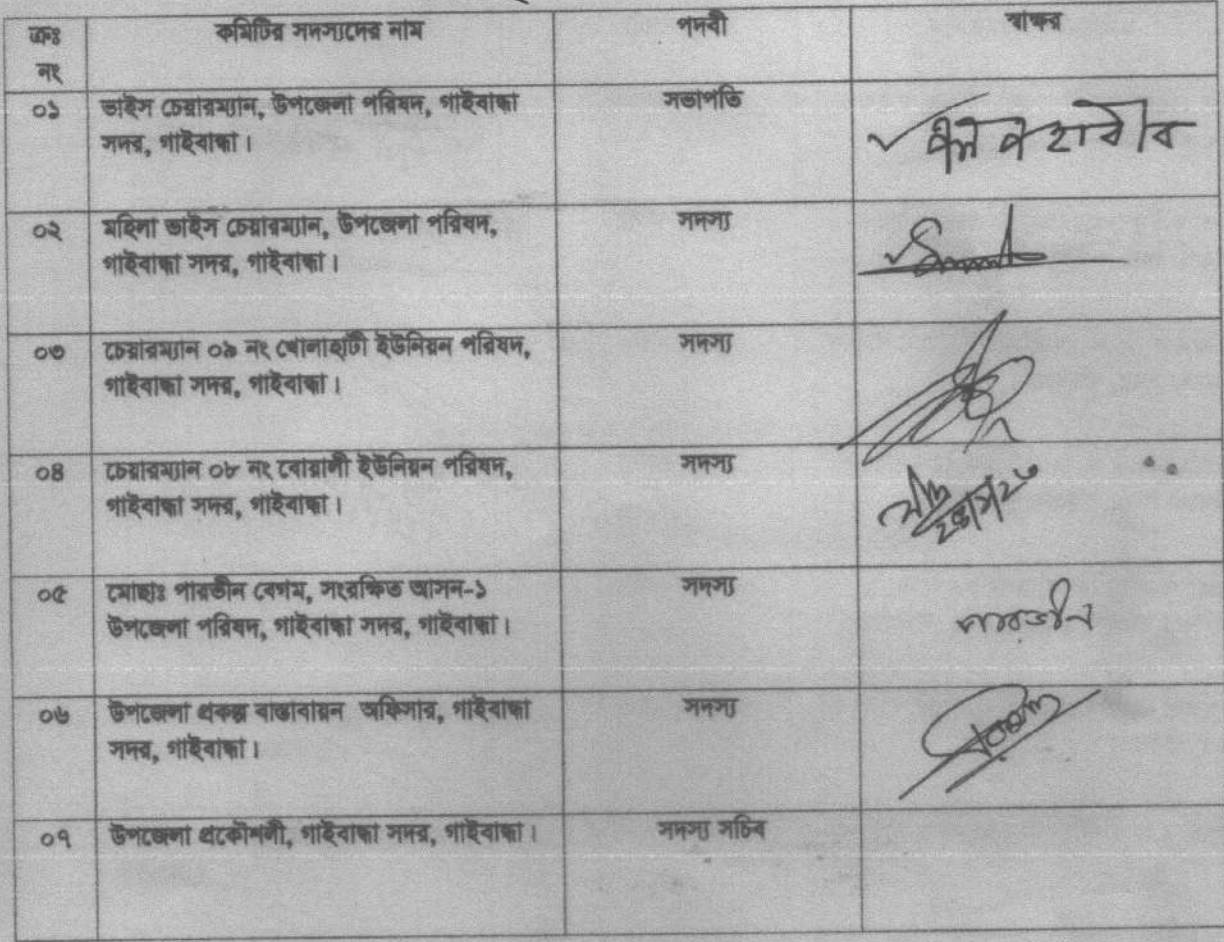 ক্রঃ নং কমিটির সদস্যদের নাম পদবী স্বাক্ষর
০১ ভাইস চেয়ারম্যান, উপজেলা পরিষদ, গাইবান্ধা সভাপতি
সদর, গাইবান্ধা।
০২ মহিলা ভাইস চেয়ারম্যান, উপজেলা পরিষদ, সদস্য
গাইবান্ধা সদর, গাইবান্ধা।
০৩ চেয়ারম্যান ০৯ নং খোলাহাটী ইউনিয়ন পরিষদ, সদস্য
গাইবান্ধা সদর, গাইবান্ধা।
০৪ চেয়ারম্যান ০৮ নং বোয়ালী ইউনিয়ন পরিষদ, সদস্য
গাইবান্ধা সদর, গাইবান্ধা।
০৫ মোছাঃ পারভীন বেগম, সংরক্ষিত আসন-১ সদস্য
উপজেলা পরিষদ, গাইবান্ধা সদর, গাইবান্ধা।
পারভীন
০৬ উপজেলা প্রকল্প বাস্তাবায়ন অফিসার, গাইবান্ধা সদস্য
সদর, গাইবান্ধা।
০৭ উপজেলা প্রকৌশলী, গাইবান্ধা সদর, গাইবান্ধা। সদস্য সচিব